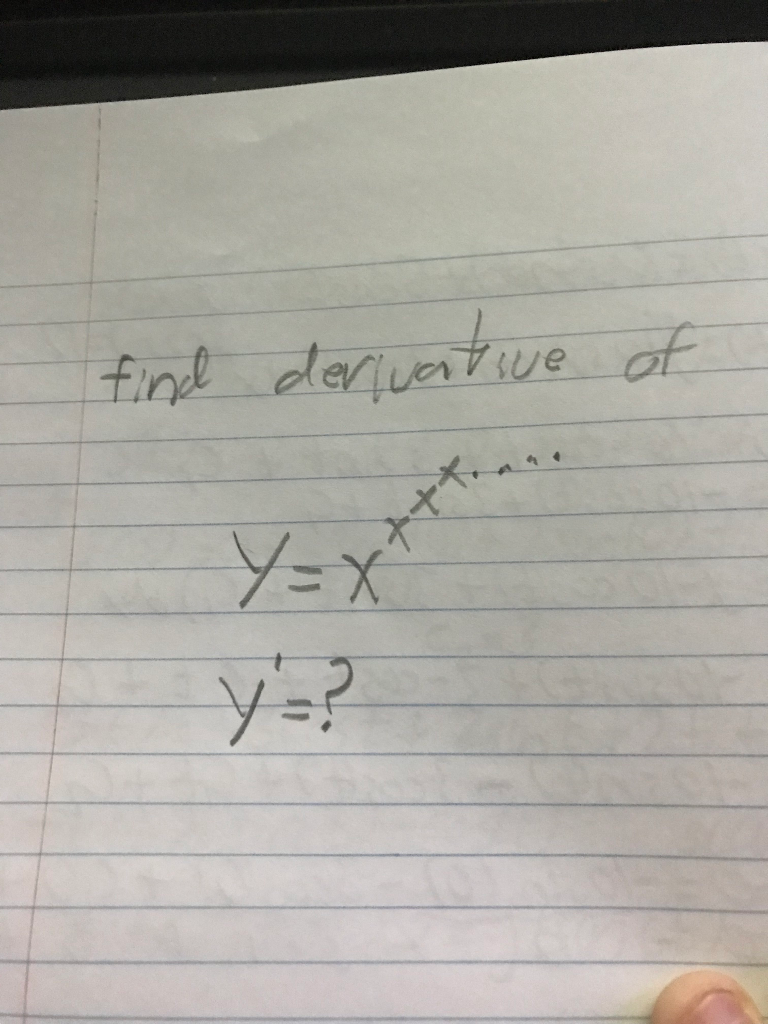 find derivative of
y = x^x^x^x.....
y' = ?